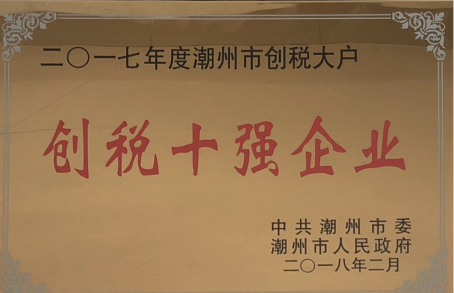 二〇一七年度潮州市创税大户
创税十强企业
中共潮州市委
潮州市人民政府
二〇一八年二月